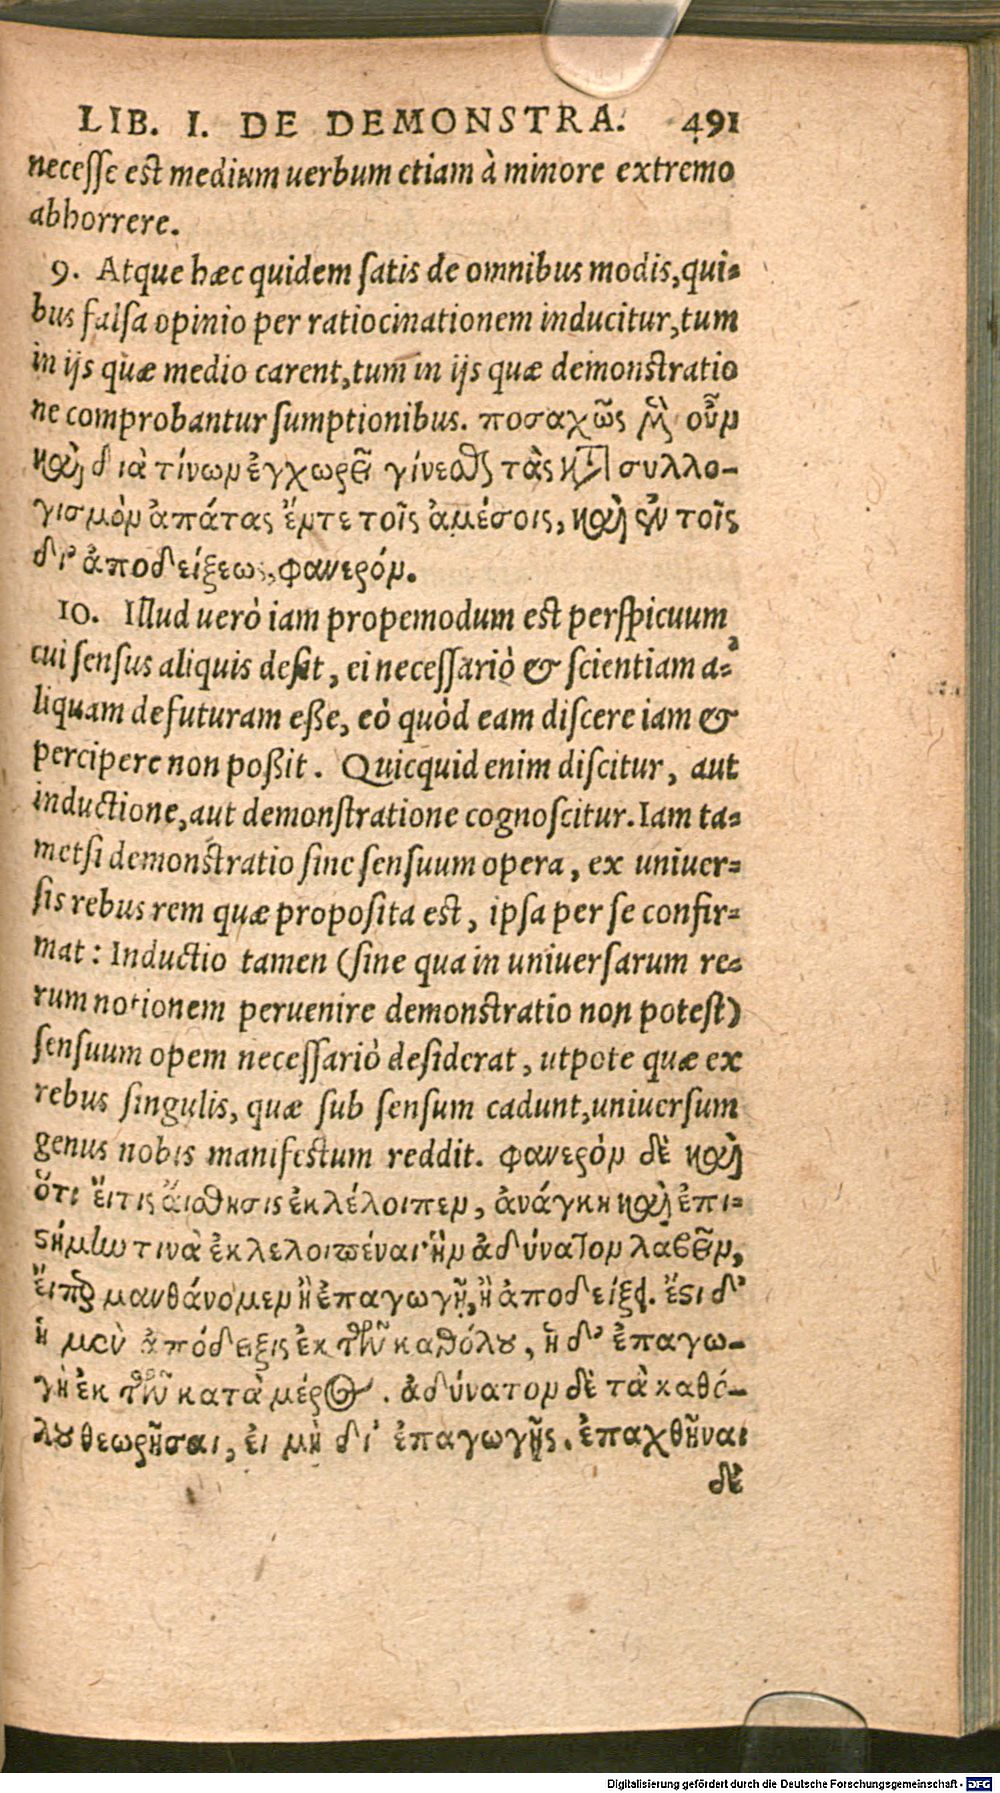 LIB. I. DE DEMONSTRA. 491
necesse est medium uerbum etiam à minore extremo
abhorrere.
9. Atque hæc quidem satis de omnibus modis, qui-
bus falsa opinio per ratiocinationem inducitur, tum
in ijs quæ medio carent, tum in ijs quæ demonstratio
ne comprobantur sumptionibus. ποσαχῶς μὲν οὖν
καὶ διὰ τίνων ἐγχωρεῖ γίνεσθαι τὰς κατὰ συλλο-
γισμὸν ἀπάτας ἔν τε τοῖς ἀμέσοις, καὶ ἐν τοῖς
δι' ἀποδείξεως, φανερόν.
10. Illud uerò iam propemodum est perspicuum
cui sensus aliquis desit, ei necessariò & scientiam a-
liquam defuturam eße, eò quòd eam discere iam &
percipere non poßit. Quicquid enim discitur, aut
inductione, aut demonstratione cognoscitur. Iam ta-
metsi demonstratio sine sensuum opera, ex uniuer-
sis rebus rem quæ proposita est, ipsa per se confir-
mat: Inductio tamen (sine qua in uniuersarum re-
rum notionem peruenire demonstratio non potest)
sensuum opem necessariò desiderat, utpote quæ ex
rebus singulis, quæ sub sensum cadunt, uniuersum
genus nobis manifestum reddit. φανερὸν δὲ καὶ
ὅτι εἴ τις αἴσθησις ἐκλέλοιπεν, ἀνάγκη καὶ ἐπι-
στήμην τινὰ ἐκλελοιπέναι· ἣν ἀδύνατον λαβεῖν,
εἴπερ μανθάνομεν ἢ ἐπαγωγῇ, ἢ ἀποδείξει. ἔστι δ'
ἡ μὲν ἀπόδειξις ἐκ τῶν καθόλου, ἡ δ' ἐπαγω-
γὴ ἐκ τῶν κατὰ μέρος. ἀδύνατον δὲ τὰ καθό-
λου θεωρῆσαι, εἰ μὴ δι' ἐπαγωγῆς. ἐπαχθῆναι
δὲ
Digitalisierung gefördert durch die Deutsche Forschungsgemeinschaft - DFG